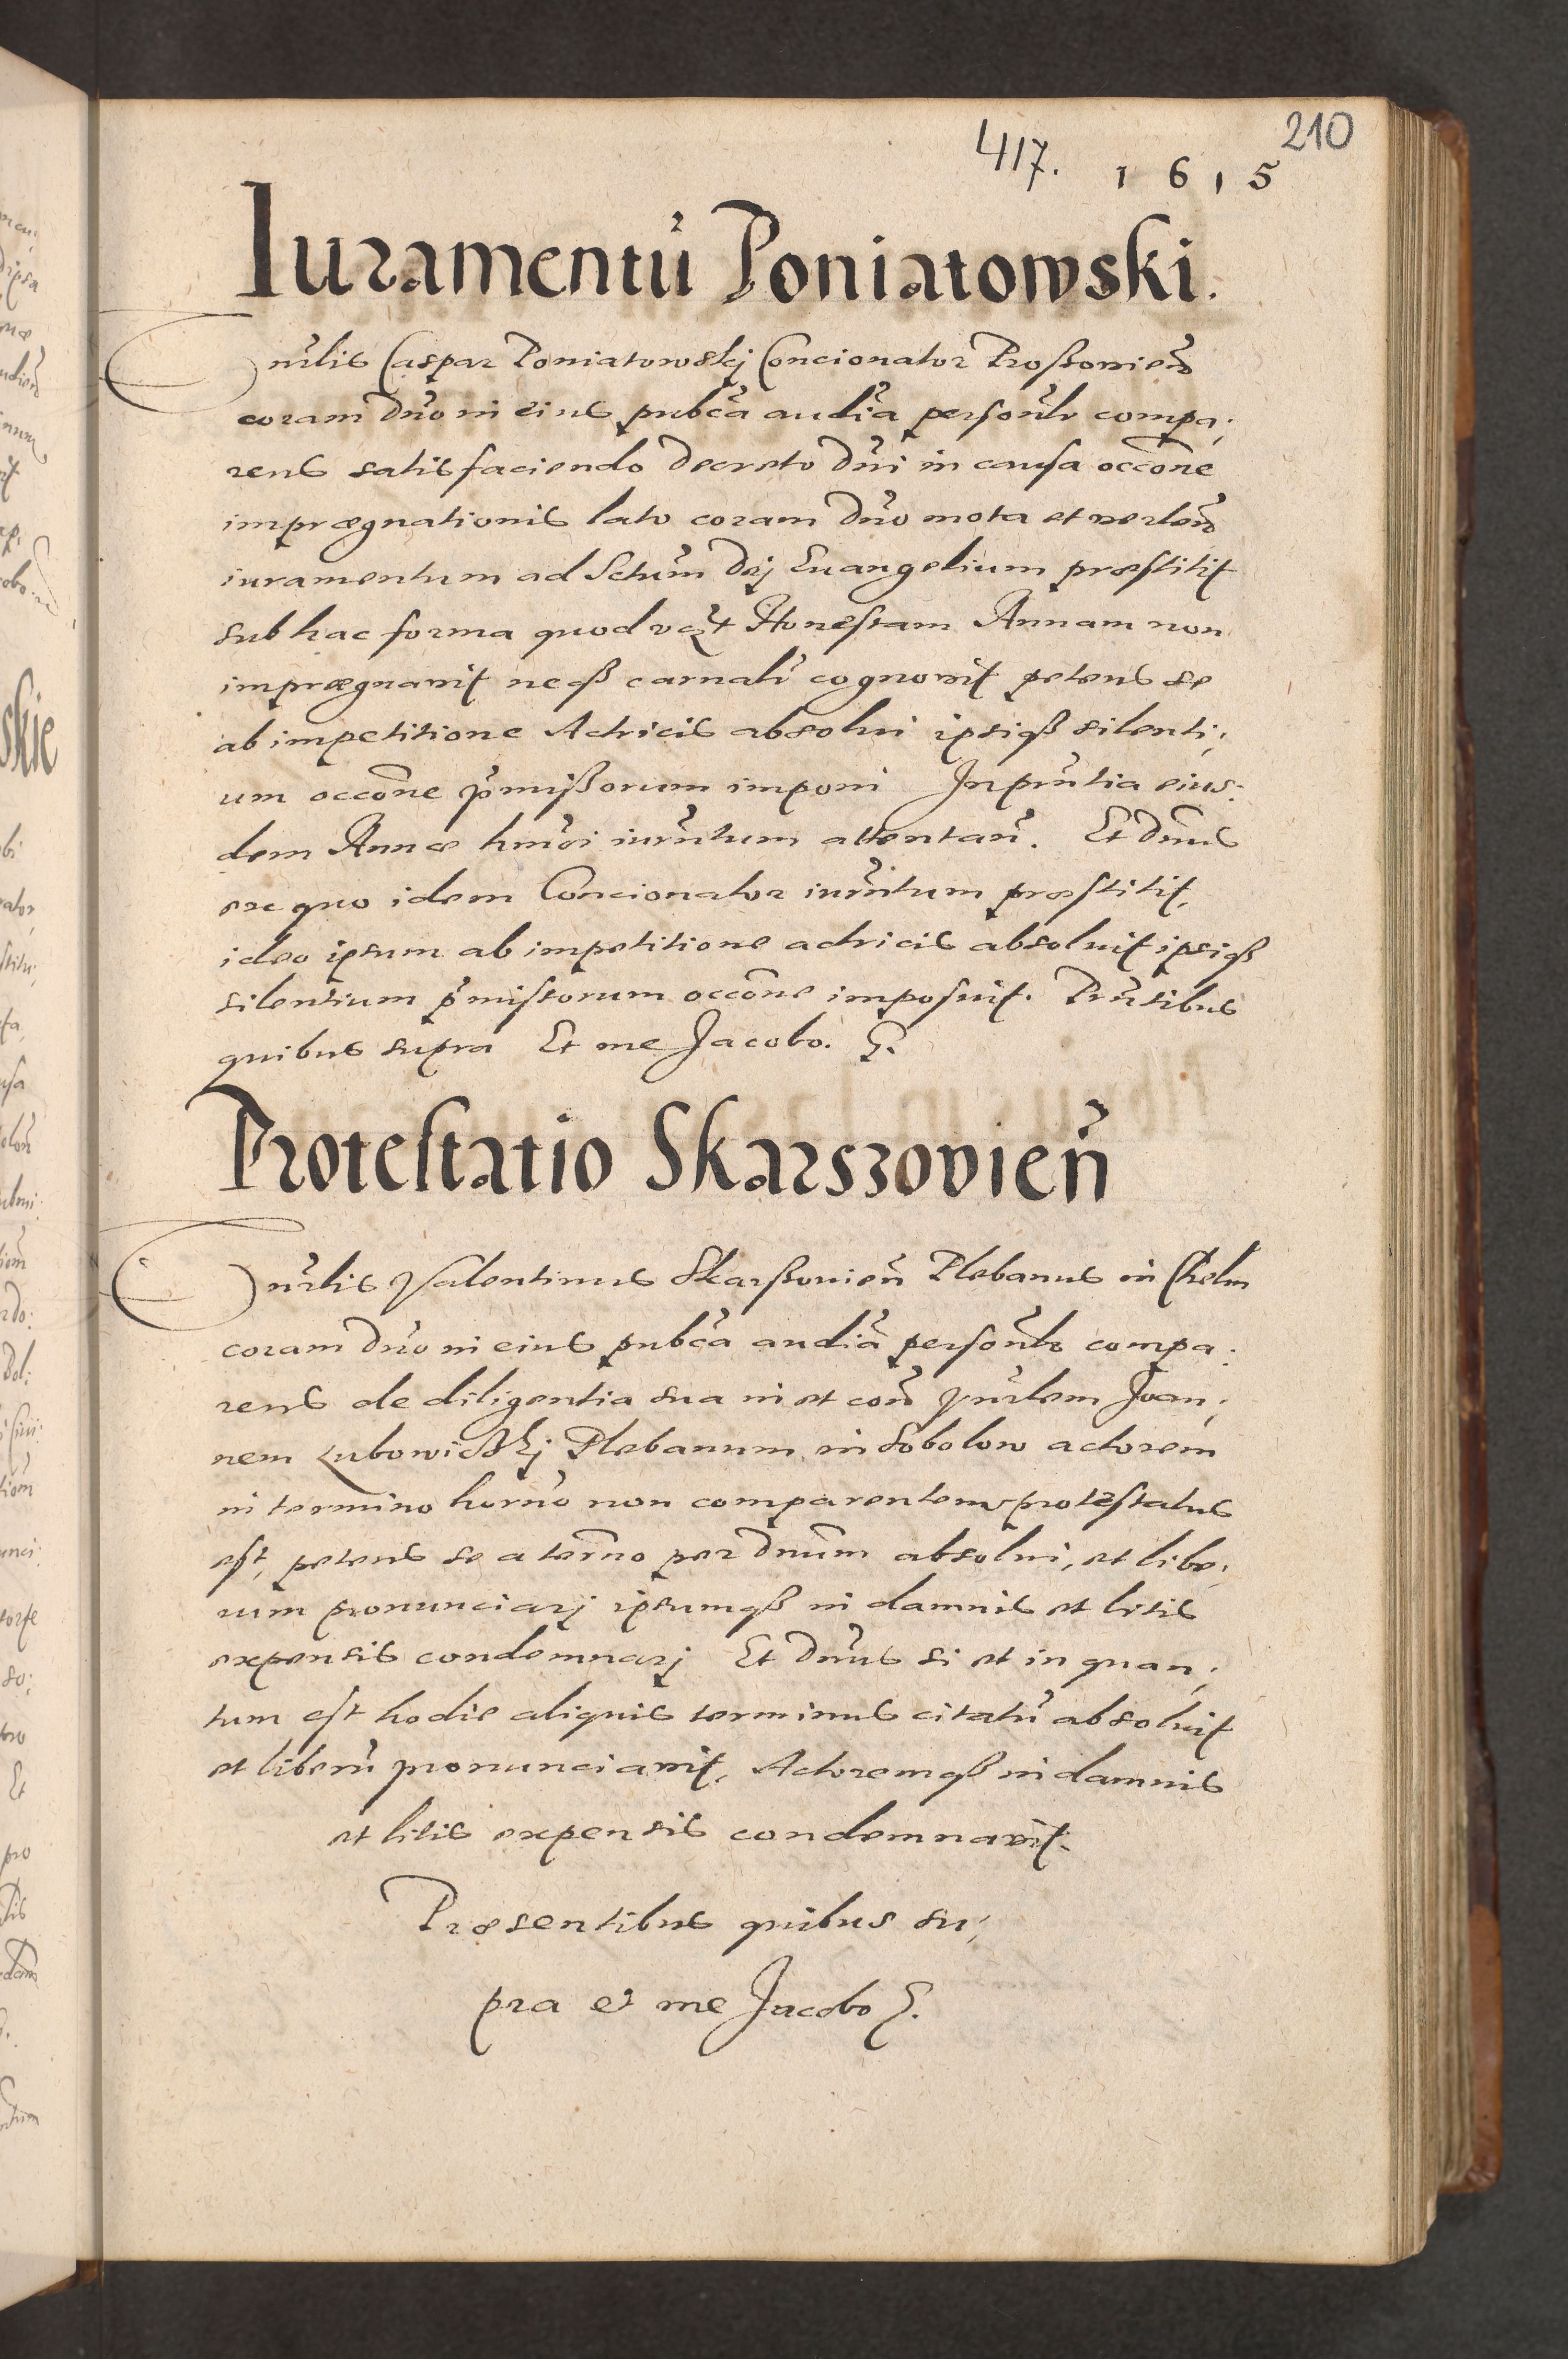 210
417. 1615
Iuramentū Poniatowski.
Vnrlis Caspar Poniatowskj Concionator Proßoviens̃
coram Dño in eius pubca audĩa persoñlr compa;
rens satisfaciendo Decreto Dñi in causa occõne
imprægnationis lato coram Dño mota et verten̄
iuramentum ad Sctũm Dej Euangelium præstitit
sub hac forma quod vcz̃t Honestam Annam non
imprægnavit neqß carnalr̃ cognovit petens se
ab impetitione Actricis absolvi ipsiqß silenti;
um occõne p̃mißorum imponi In pñtia eius:
dem Annæ hmõi iurñtum attentañ. Et Dñus
ex quo idem Concionator iurm̃tum præstitit,
ideo ipsum ab impetitione actricis absoluit ipsiqß
silentium p̃missorum occõne imposuit. Pñtibus
quibus supra Et me Jacobo. S.
Protestatio Skarszovieñ
Vnrlis Valentinus Skarßovieñ Plebanus in Chelm
coram Dño in eius pubca audĩa persoñlr compa:
rens de diligentia sua in et coñ Vnrlem Joan;
nem Lubowickj Plebanum in Sobolow actorem
in termino horño non comparentem protestatus
est, petens se a termõ per Dnũm absolvi, et libe;
rum pronunciarj ipsumqß in damnis et litis
expensis condemnarj Et Dñus si et in quan;
tum est hodie aliquis terminus citatũ absoluit
et liberũ pronunciavit, Actoremqß in damnis
et litis expensis condemnavit.
Præsentibus quibus su;
pra et me Jacobo S.